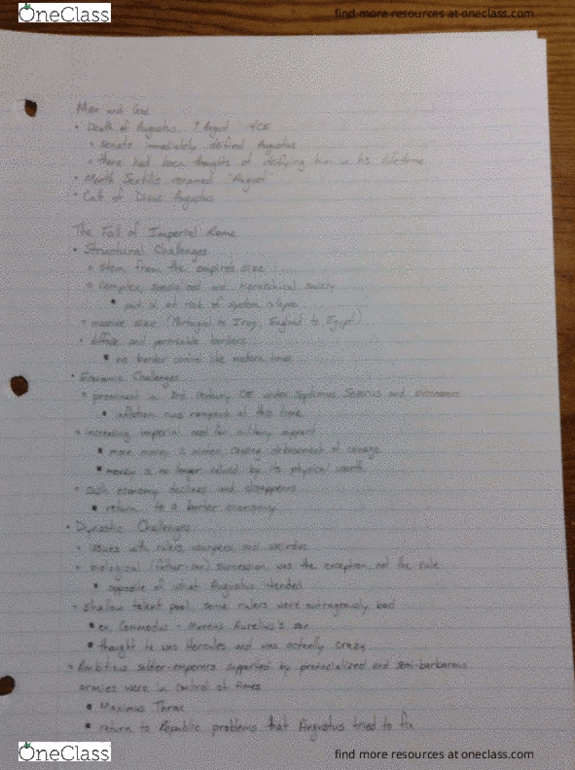 OneClass
find more resources at oneclass.com
Man and God
• Death of Augustus, ? August 14CE
◦ senate immediately deified Augustus
◦ there had been thoughts of deifying him in his lifetime
• Month Sextilis renamed "August"
• Cult of Divus Augustus
The Fall of Imperial Rome
• Structural Challenges
◦ stem from the empire's size
◦ complex, specialized and hierarchical society
▪ put it at risk of system collapse
◦ massive size (Portugal to Iraq, England to Egypt)
◦ diffuse and permeable borders
▪ no border control like modern times
• Economic Challenges
◦ prominent in 3rd century CE under Septimius Severus and successors
▪ inflation runs rampant at this time
◦ increasing imperial need for military support
▪ more money is minted, causing debasement of coinage
▪ money is no longer valued by its physical worth
◦ cash economy declines and disappears
▪ return to a barter economy
• Dynastic Challenges
◦ issues with rulers, usurpers, and weirdos
◦ biological (father-son) succession was the exception, not the rule
▪ opposite of what Augustus intended
◦ shallow talent pool, some rulers were outrageously bad
▪ ex. Commodus - Marcus Aurelius's son
▪ thought he was Hercules and was actually crazy
◦ Ambitious soldier-emperors supported by provincialized and semi-barbarous
armies were in control at times
▪ Maximus Thrax
▪ return to Republic problems that Augustus tried to fix
OneClass
find more resources at oneclass.com